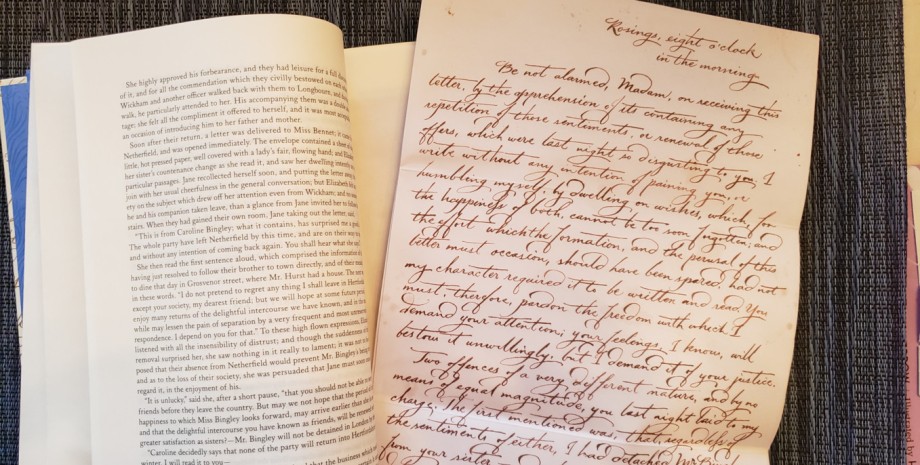 She highly approved his forbearance, and they had leisure for a full
of it, and for all the commendation which they civilly bestowed on each
Wickham and another officer walked back with them to Longbourn, and
walk, he particularly attended to her. His accompanying them was a
tage; she felt all the compliment it offered to herself, and it was most
an occasion of introducing him to her father and mother.
Soon after their return, a letter was delivered to Miss Bennet; it
Netherfield, and was opened immediately. The envelope contained a sheet
little, hot pressed paper, well covered with a lady's fair, flowing hand; and
her sister's countenance change as she read it, and saw her dwelling
particular passages. Jane recollected herself soon, and putting the letter
join with her usual cheerfulness in the general conversation; but Elizabeth
ety on the subject which drew off her attention even from Wickham; and
he and his companion taken leave, than a glance from Jane invited her to
stairs. When they had gained their own room, Jane taking out the letter,
"This is from Caroline Bingley; what it contains, has surprised me
The whole party have left Netherfield by this time, and are on their way
and without any intention of coming back again. You shall hear what she
She then read the first sentence aloud, which comprised the information
having just resolved to follow their brother to town directly, and of their
to dine that day in Grosvenor street, where Mr. Hurst had a house. The
in these words. "I do not pretend to regret any thing I shall leave in
except your society, my dearest friend; but we will hope at some future
enjoy many returns of the delightful intercourse we have known, and in the
while may lessen the pain of separation by a very frequent and most
respondence. I depend on you for that." To these high flown expressions,
listened with all the insensibility of distrust; and though the suddenness
removal surprised her, she saw nothing in it really to lament; it was not
posed that their absence from Netherfield would prevent Mr. Bingley's
and as to the loss of their society, she was persuaded that Jane must
regard it, in the enjoyment of his.
"It is unlucky," said she, after a short pause, "that you should not be able
friends before they leave the country. But may we not hope that the
happiness to which Miss Bingley looks forward, may arrive earlier than
and that the delightful intercourse you have known as friends, will be
greater satisfaction as sisters?—Mr. Bingley will not be detained in London
"Caroline decidedly says that none of the party will return into
winter. I will read it to you—
that the business which
Rosings, eight o'clock
in the morning
Be not alarmed, Madam, on receiving this
letter, by the apprehension of its containing any
repetition of those sentiments, or renewal of those
offers, which were last night so disgusting to you. I
write without any intention of paining you, or
humbling myself, by dwelling on wishes, which, for
the happiness of both, cannot be too soon forgotten; and
the effort which the formation, and the perusal of this
letter must occasion, should have been spared, had not
my character required it to be written and read. You
must, therefore, pardon the freedom with which I
demand your attention; your feelings, I know, will
bestow it unwillingly, but I demand it of your justice.
Two offences of a very different nature, and by no
means of equal magnitude, you last night laid to my
charge. The first mentioned was, that, regardless of
the sentiments of either, I had detached Mr
from your sister